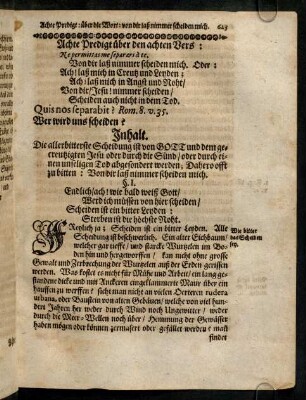 Achte Predigt: über die Wort: von dir laß nimmer scheiden mich. 643
Achte Predigt über den achten Vers:
Ne permittas me separari à te.
Von dir laß nimmer scheiden mich. Oder:
Ach! laß mich in Creutz und Leyden:
Ach! laß mich in Angst und Noht/
Von dir/Jesu! nimmer scheiden/
Scheiden auch nicht in dem Tod.
Quis nos separabit? Rom. 8. v. 35.
Wer wird uns scheiden?
Inhalt.
Die allerbitterste Scheidung ist von GOTT und dem ge-
creutzigten Jesu oder durch die Sünd/ oder durch ei-
nen unseligen Tod abgesondert werden, Dahero offt
zu bitten: Von dir laß nimmer scheiden mich.
§. I.
Endlich/ach! wie bald weiß Gott/
Werd ich müssen von hier scheiden/
Scheiden ist ein bitter Leyden:
Sterben ist die höchste Noht.
Freylich ja: Scheiden ist ein bitter Leyden. Alle
Scheidung ist beschwerlich. Ein alter Eichbaum/
welcher gar tieffe/ und starcke Wurtzeln im Bo-
den hin und her geworffen/ kan nicht ohne grosse
Gewalt und Zerbrechung der Wurtzeln aus der Erden gerissen
werden. Was kostet es nicht für Mühe und Arbeit/ ein lang ge-
standene dicke und mit Anckeren eingeklammerte Maur über ein
hauffen zu werffen? sihet man nicht an vielen Oerteren rudera
urbana, oder Baustein von alten Gebäuen/ welche von viel hun-
dert Jahren her weder durch Wind noch Ungewitter/ weder
durch die Meer-Wellen noch über/ Hemmung der Gewässer
haben mögen oder können germasere oder gefället werden? mast
finder
Wie bitter
das Scheiden
sey.